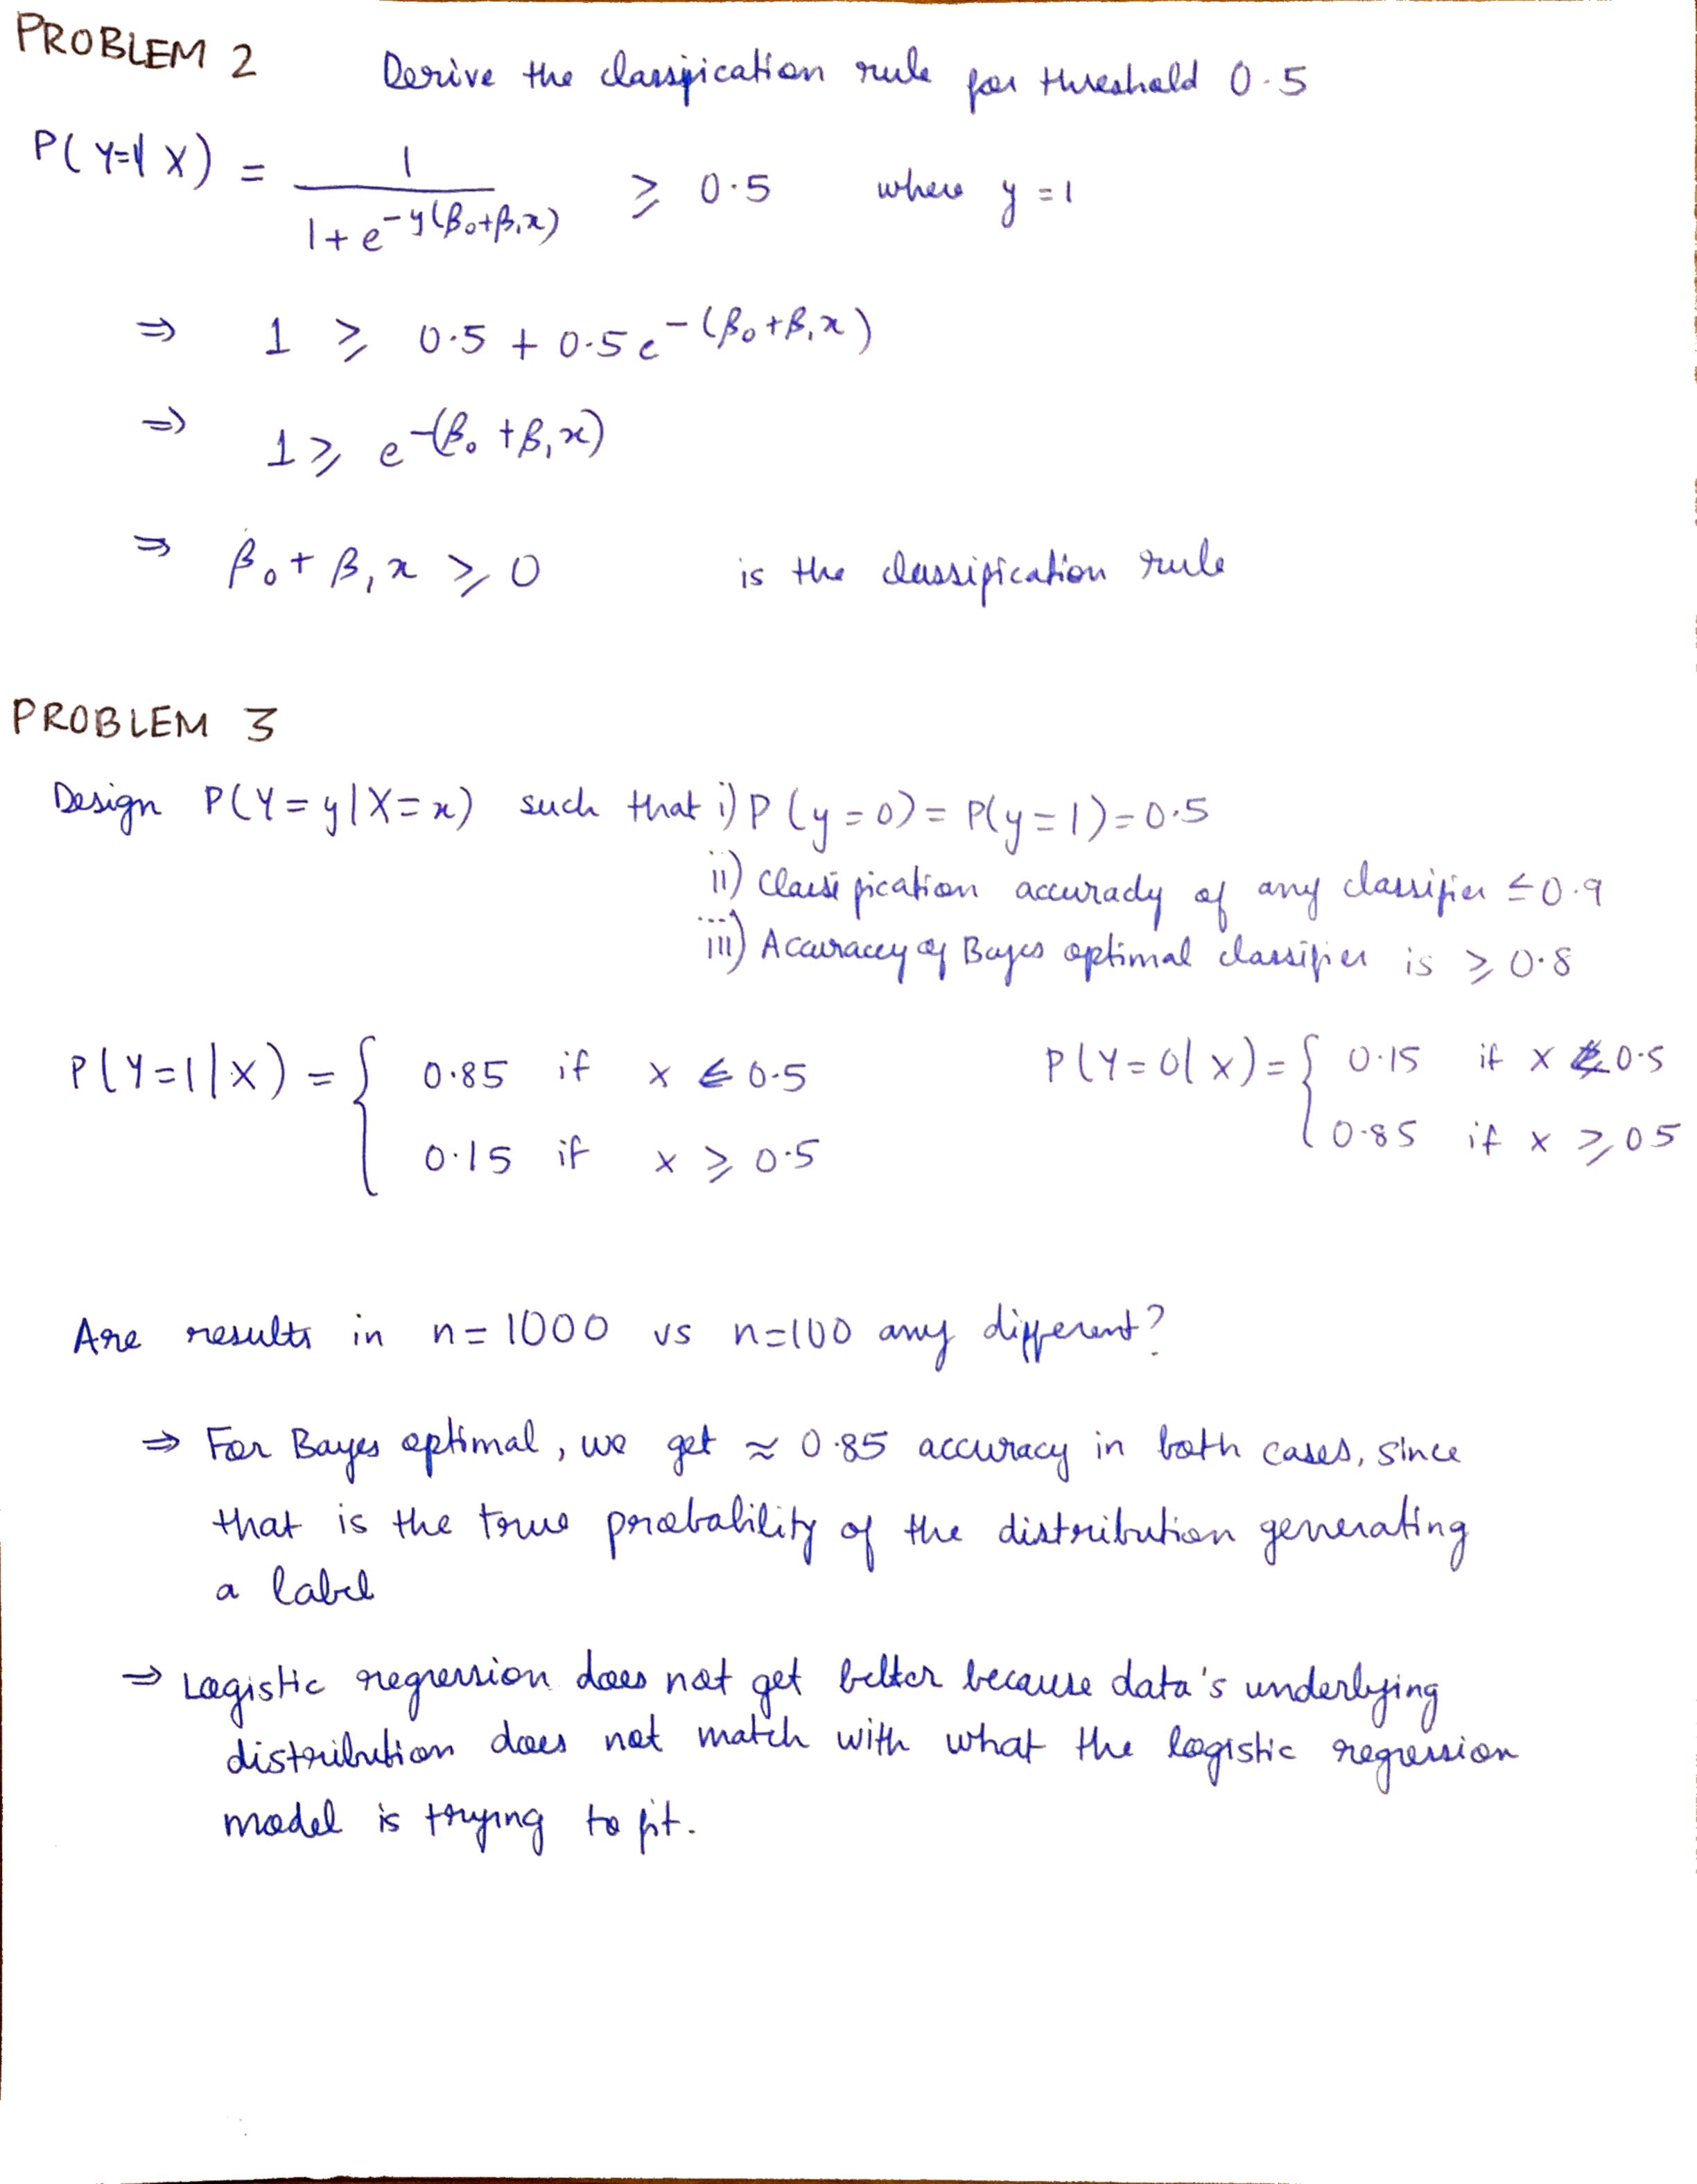 PROBLEM 2
Derive the classification rule for threshold 0.5
P(Y=1|X) = 1 / (1+e^{-y(β₀+β₁x)}) ≥ 0.5 where y=1
⇒ 1 ≥ 0.5 + 0.5e^{-(β₀+β₁x)}
⇒ 1 ≥ e^{-(β₀+β₁x)}
⇒ β₀+β₁x ≥ 0 is the classification rule
PROBLEM 3
Design P(Y=y|X=x) such that i) P(y=0) = P(y=1) = 0.5
ii) Classification accurady of any classifier ≤ 0.9
iii) Accuracy of Bayes optimal classifier is ≥ 0.8
P(Y=1|X) = { 0.85 if x ≤ 0.5 P(Y=0|X) = { 0.15 if x 0.5
0.15 if x ≥ 0.5 0.85 if x ≥ 05
Are results in n=1000 vs n=100 any different?
⇒ For Bayes optimal, we get ≈ 0.85 accuracy in both cases, since
that is the true probability of the distribution generating
a label
⇒ Logistic regression does not get better because data's underlying
distribution does not match with what the logistic regression
model is trying to fit.